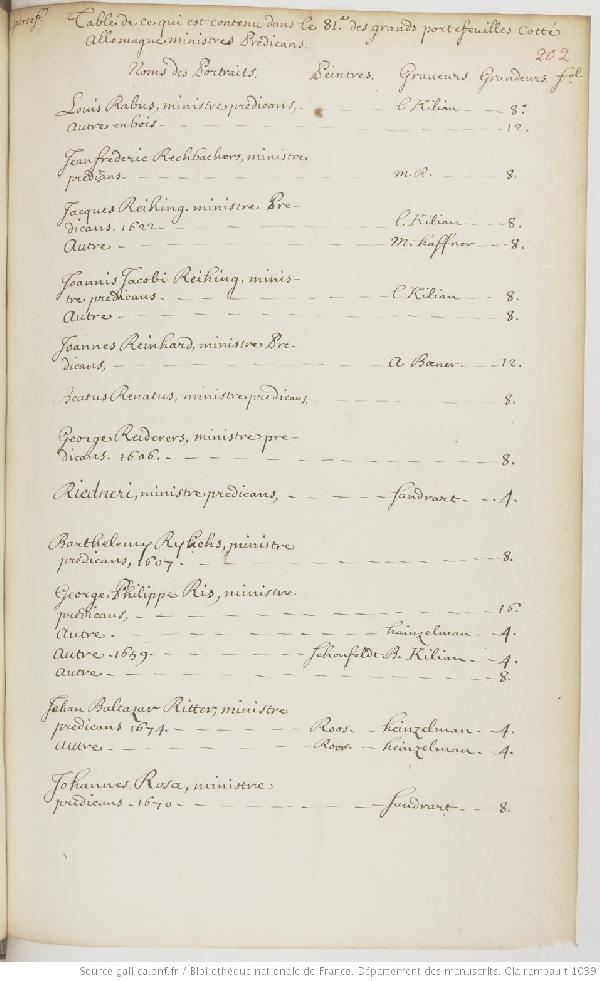 portef.
Table de ce qui est contenu dans le 81.e des grands portefeuilles cotté
Allemagne ministres Prédicans.
202
Noms des Portraits. Peintres. Graveurs. Grandeurs. fol
Louis Rabus, ministre prédicans, l. Kilian 8.
autre en bois 12.
Jean frederic Rechbachers, ministre
prédicans m. R. 8.
Jacques Reihing, ministre Pre-
dicans. 1622 l. Kilian 8.
Autre m. haffner 8.
Joannis Jacobi Reihing, minis-
tre prédicans l Kilian 8.
autre 8.
Joannes Reinhard, ministre Pre-
dicans, A Boener 12.
Beatus Renatus, ministre prédicans, 8.
George Reiderers, ministre pre-
dicans. 1606. 8.
Riedneri, ministre prédicans, Sandrart 4.
Barthelemy Rylichs, ministre
prédicans, 1607. 8.
George Philippe Ris, ministre
prédicans, 16.
Autre heinzelman 4.
autre 1659 Schonfeldt B. Kilian 4.
autre 8.
Jehan Baltazar Ritter, ministre
prédicans 1674. Roos heinzelman 4.
autre Roos heinzelman 4.
Johannes Rosa, ministre
prédicans 1670 Sandrart 8.
Source gallica.bnf.fr / Bibliothèque nationale de France. Département des manuscrits. Clairambault 1039